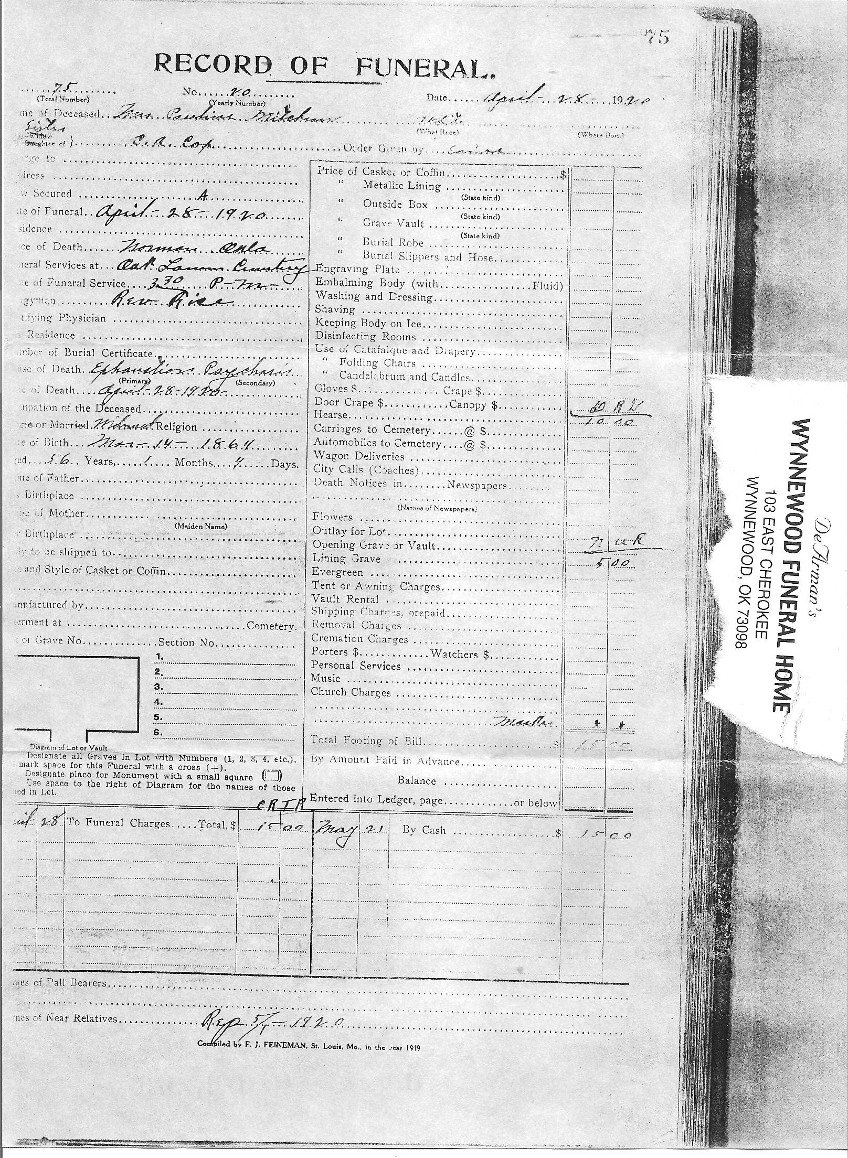 75
RECORD OF FUNERAL.
75 No. 20 Date April 28 1920
(Total Number) (Yearly Number)
me of Deceased Mrs. Mitchum
(What Race) (Where Born)
Sister
Daughter of } C. R. Cop Order Given by
rge to
dress
w Secured A
te of Funeral April - 28 - 1920
sidence
ce of Death Norman Okla
eral Services at Oak Cemetery
e of Funeral Service 3 30 P-m-
gyman Rev Rice
ifying Physician
Residence
mber of Burial Certificate
use of Death Exhaustion Psychosis
(Primary) (Secondary)
e of Death April - 28 - 1920
upation of the Deceased
le or Married Widowed Religion
e of Birth Mar - 14 - 1864
ed 56 Years, 1 Months, Days.
me of Father
Birthplace
ne of Mother
(Maiden Name)
Birthplace
ly to be shipped to
and Style of Casket or Coffin
anufactured by
erment at Cemetery.
or Grave No. Section No.
1.
2.
3.
4.
5.
6.
Diagram of Lot or Vault
Designate all Graves in Lot with Numbers (1, 2, 3, 4, etc.),
mark space for this Funeral with a cross (+).
Designate place for Monument with a small square
Use space to the right of Diagram for the names of those
ed in Lot.
Price of Casket or Coffin $
" Metallic Lining
(State kind)
" Outside Box
(State kind)
" Grave Vault
(State kind)
" Burial Robe
" Burial Slippers and Hose
Engraving Plate
Embalming Body (with Fluid)
Washing and Dressing
Shaving
Keeping Body on Ice
Disinfecting Rooms
Use of Catafalque and Drapery
" Folding Chairs
" Candelabrum and Candles
Gloves $ Crape $
Door Crape $ Canopy $
Hearse 10 00
Carriages to Cemetery @ $
Automobiles to Cemetery @ $
Wagon Deliveries
City Calls (Coaches)
Death Notices in Newspapers
(Names of Newspapers)
Flowers
Outlay for Lot
Opening Grave or Vault
Lining Grave 5 00
Evergreen
Tent or Awning Charges
Vault Rental
Shipping Charges, prepaid
Removal Charges
Cremation Charges
Porters $ Watchers $
Personal Services
Music
Church Charges
Total Footing of Bill $ 15 00
By Amount Paid in Advance
Balance
Entered into Ledger, page or below
28 To Funeral Charges Total, $ 15 00 May 21 By Cash $ 15 00
mes of Pall Bearers
mes of Near Relatives
1920
Compiled by F. J. FEINEMAN, St. Louis, Mo., in the year 1919
DeArman's
WYNNEWOOD FUNERAL HOME
103 EAST CHEROKEE
WYNNEWOOD, OK 73098